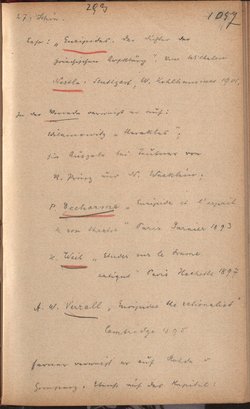 1097
„Euripides", der Dichter der
griechischen Aufklärung, von Wilhelm
Nestle. Stuttgart, W. Kohlhammer 1901
In der Vorrede verweist er auf:
Wilamowitz „Herakles";
die Ausgabe bei Teubner von
R. Prinz und N. Wecklein;
P. Decharme „Euripide et l'esprit
de son théatre" Paris Garnier 1893
H. Weil „Etudes sur le drame
antique" Paris Hachette 1897
A. W. Verrall, Euripides the rationalist
Cambridge 1895
ferner verweist er auf Rohde u
Gomperz; auf das Kapitel: